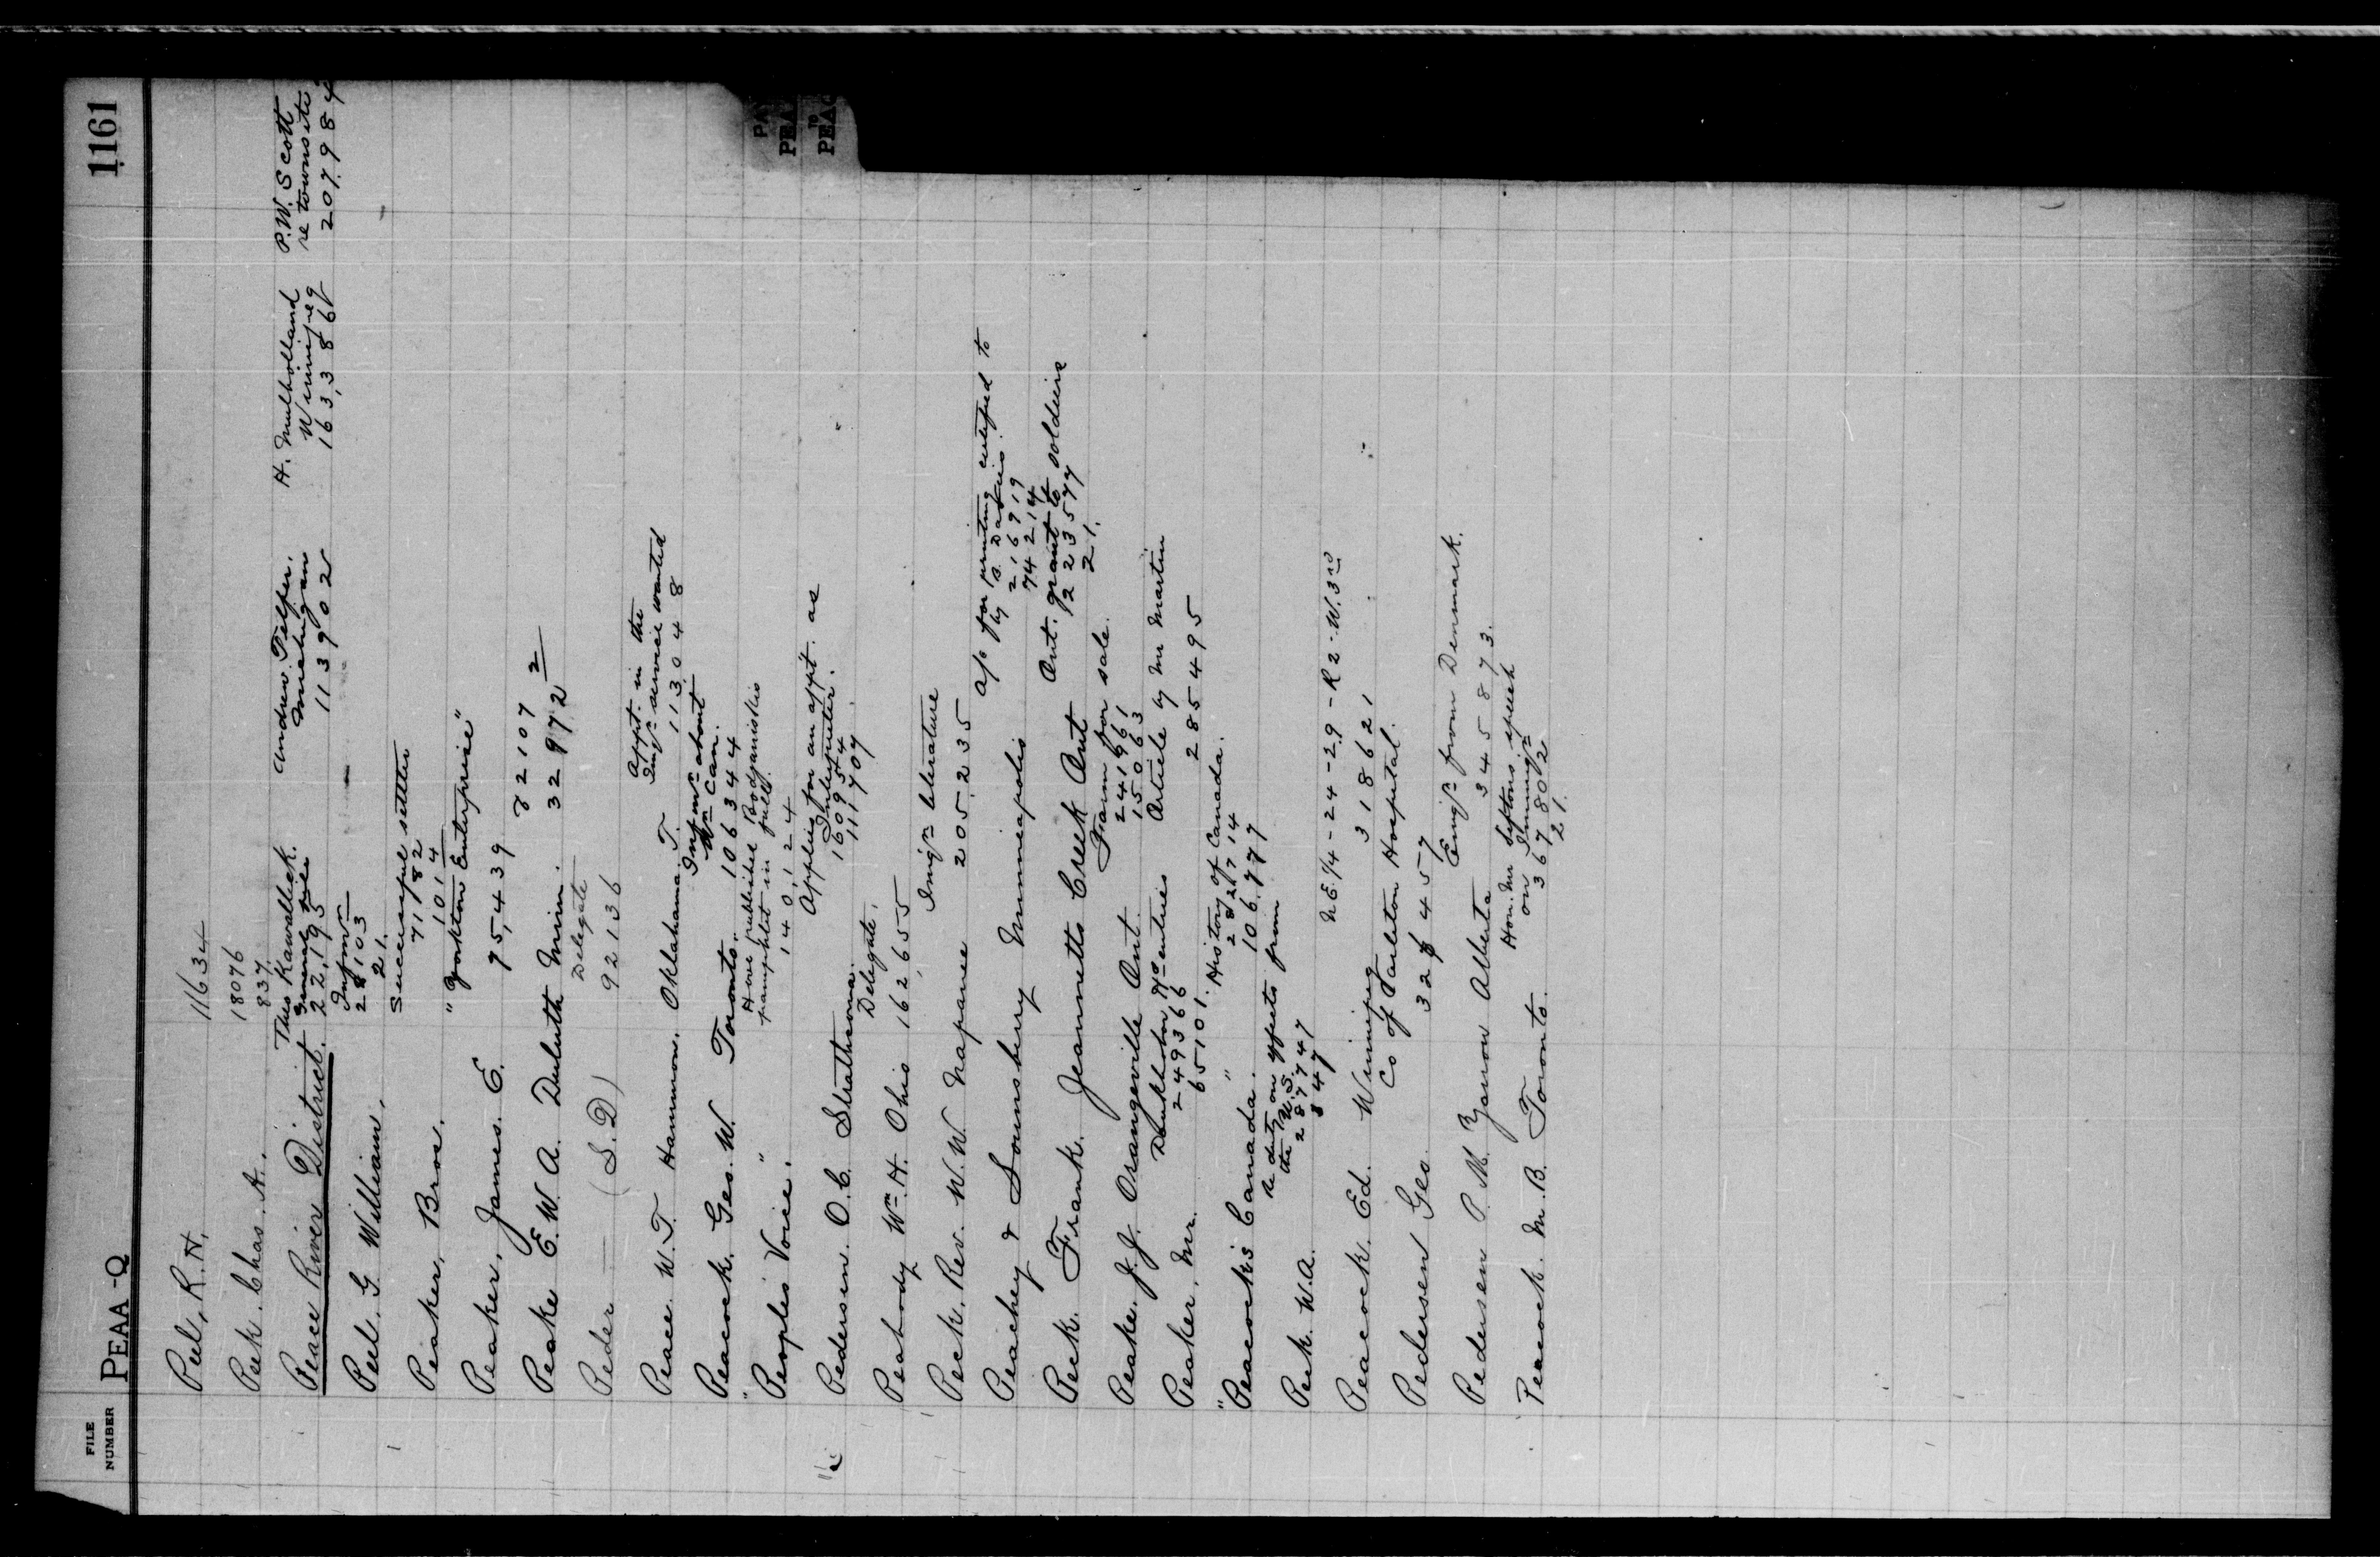 1161
FILE
NUMBER
PEAA-Q
Peel, R. H. 11634
Peck. Chas. A. 18076
837.
Peace River District.
Theo Kawalleck.
22,195
Andrew Telfer.
Michigan
113902
H. Mulholland
Winnipeg
163,386
P.W. Scott
re townsite
207984
Peel. G. William.
Infmn
28103
21.
Peaker, Bros.
Successful settler
71182
1014
Peaker, James. E.
"Yorkton Enterprise"
75,439
Peake E. W. A. Duluth Minn.
82107
32972
2
Peder — (S.D)
Delegate
92136
Peace. W. T. Hammon. Oklahama. T.
Appt. in the
Imign service wanted
113048
Peacock. Geo. W. Toronto.
Infmn about
Wn Can.
1063444
"Peoples Voice."
Have published Bodganistkis
pamphlet in full
140,124
Pedersen. O. C. Strathcona.
Applies for an appt. as
Interpreter.
160954
111707
Peabody Wm. H. Ohio
Delegate.
162,655
Peck. Rev. W. W. Napanee
Imign literature
205,235
Peachey & Lounsbery Minneapolis
a/c for printing certified to
by B. Davies
216919
74214
Peck. Frank. Jeannetts Creek Ont
Ont. grant to soldiers
223577
21.
Peake. J. J. Orangeville Ont.
Farm for sale.
241961
15063
Peaker, Mr.
Doukhobor Hd entries
249366
65101.
Article by Mr Martin
285495
"Peacock's Canada."
History of Canada.
282714
106,777
Peck. W. A.
re duty on effects from
the U.S.
287747
847
Peacock. Ed. Winnipeg
N.E.1/4-24-29-R2-W.3rd
318621
Pedersen Geo.
Co of Carleton Hospital.
Pedersen P. M. Yarrow Alberta
Emign from Denmark.
345873.
Peacock. M. B. Toronto.
Hon. Mr Siftons speech
on Immign
367802
21.
PEA
TO